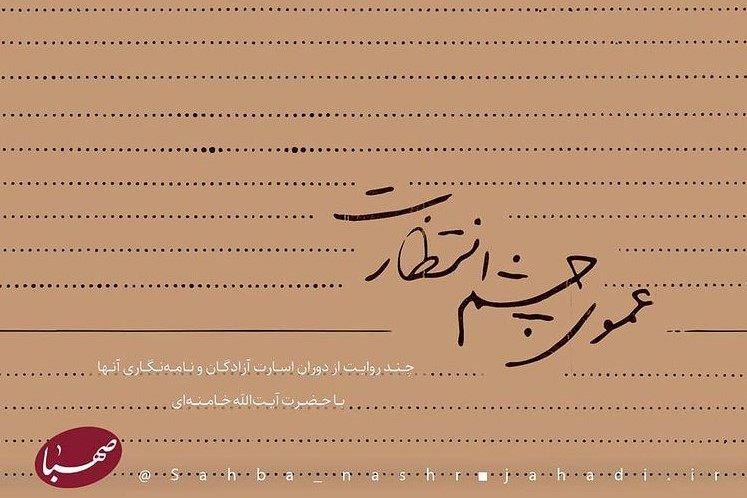 عموی چشم انتظارت
چند روایت از دوران اسارت آزادگان و نامه‌نگاری آنها
با حضرت آیت‌الله خامنه‌ای
صهبا
@Sahba_nashr ■ jahadi.ir